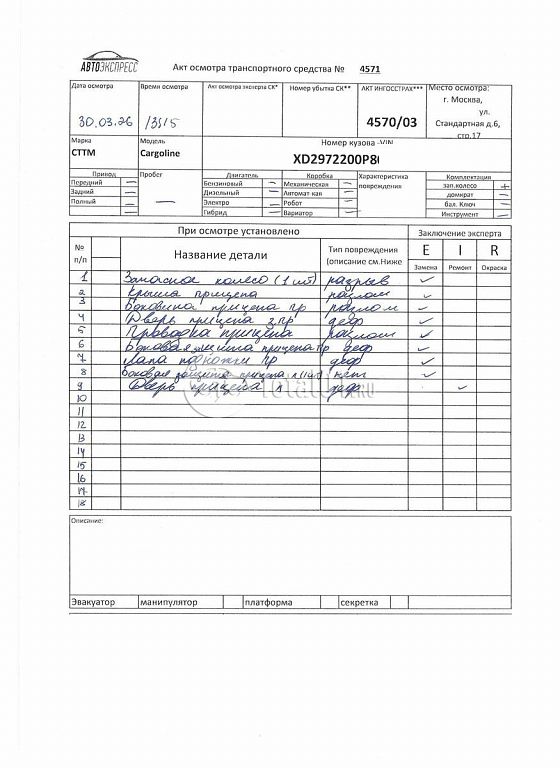 АВТОЭКСПРЕСС
Акт осмотра транспортного средства № 4571
Дата осмотра
Время осмотра
Акт осмотра эксперта СК*
Номер убытка СК**
АКТ ИНГОССТРАХ***
Место осмотра:
г. Москва,
ул.
Стандартная д.6,
стр.17
30.03.26
13:15
4570/03
Марка
Модель
Номер кузова VIN
СТТМ
Cargoline
XD2972200P8
Привод
Пробег
Двигатель
Коробка
Характеристика
повреждения
Комплектация
Передний —
Бензиновый —
Механическая —
зап.колесо +
Задний —
Дизельный —
Автомат кая —
домкрат —
Полный —
—
Электро —
Робот —
бал. Ключ —
Гибрид —
Вариатор —
Инструмент —
При осмотре установлено
Заключение эксперта
№
п/п
Название детали
Тип повреждения
(описание см.Ниже
E I R
Замена Ремонт Окраска
1 Запасное колесо (1 шт) разрыв ✓
2 Крыша прицепа разлом ✓
3 Боковина прицепа пр разлом ✓
4 Дверь прицепа з пр деф ✓
5 Проводка прицепа разлом ✓
6 Боковая защита прицепа пр деф ✓
7 Лапа подножки пр деф ✓
8 Боковая защита прицепа л (1шт) нет ✓
9 Дверь прицепа л деф ✓
10
11
12
13
14
15
16
17
18
Описание:
Эвакуатор манипулятор платформа секретка